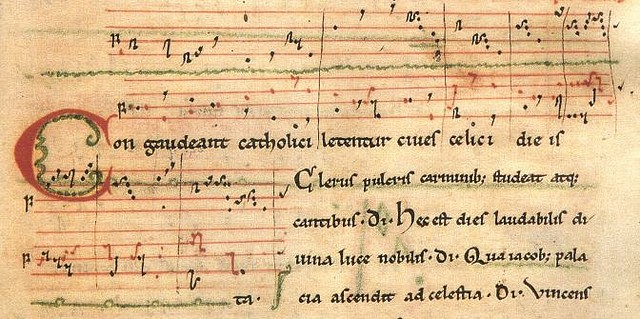 Con gaudeant catholici letentur ciues celici die is
Clerus pulcris carminib; studeat atq;
cantibus · di · Hec est dies laudabilis di
uina luce nobilis · di · Qua iacob; pala
ta · cia ascendit ad celestia · Di · Vincens